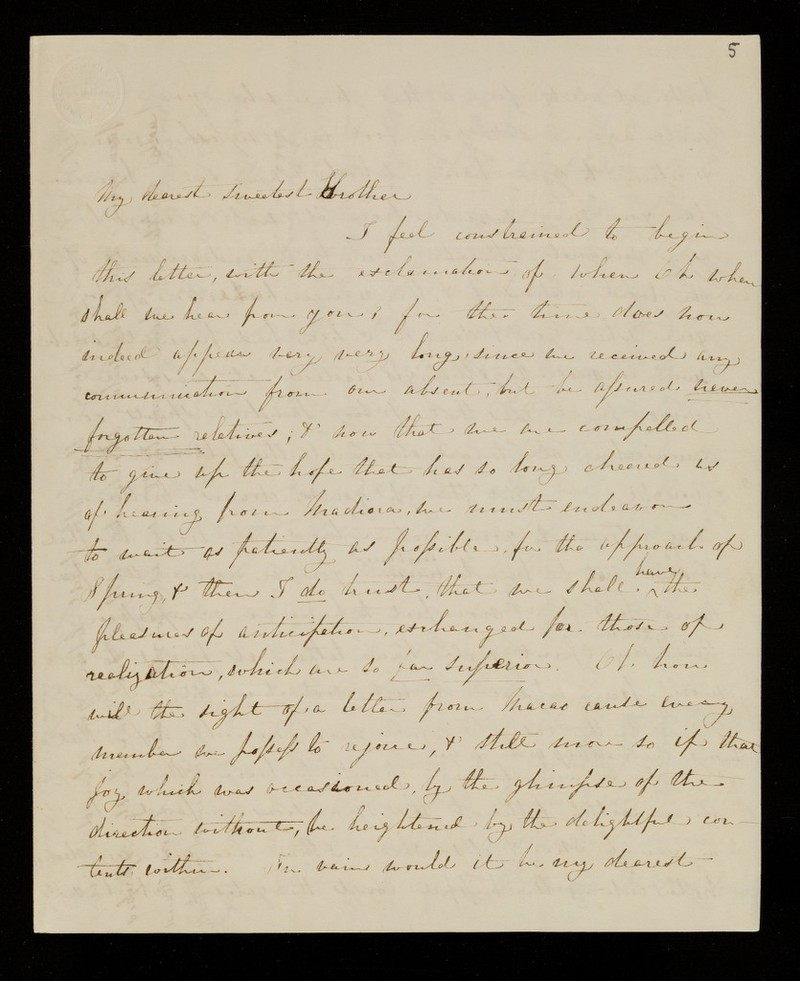 5
My dearest sweetest Brother
I feel constrained to begin
this letter, with the exclamation of when Oh when
shall we hear from you; for the time does now
indeed appear very very long, since we received any
communication from our absent, but be assured never
forgotten relatives; & now that we are compelled
to give up the hope that has so long cheered us
of hearing from Madiora, we must endeavour
to wait as patiently as possible, for the approach of
Spring, & then I do trust, that we shall have the
pleasures of anticipation, exchanged for those of
realization, which are so far superior. Oh how
will the sight of a letter from Macao cause every
member we possess to rejoice, & still more so if that
joy which was occasioned, by the glimpse of the
direction without, be heightened by the delightful con-
tents within. In vain would it be my dearest